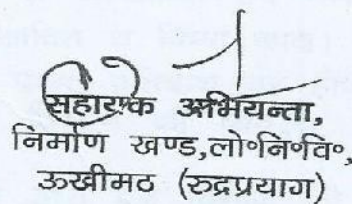 सहायक अभियन्ता,
निर्माण खण्ड,लो०नि०वि०,
ऊखीमठ (रुद्रप्रयाग)